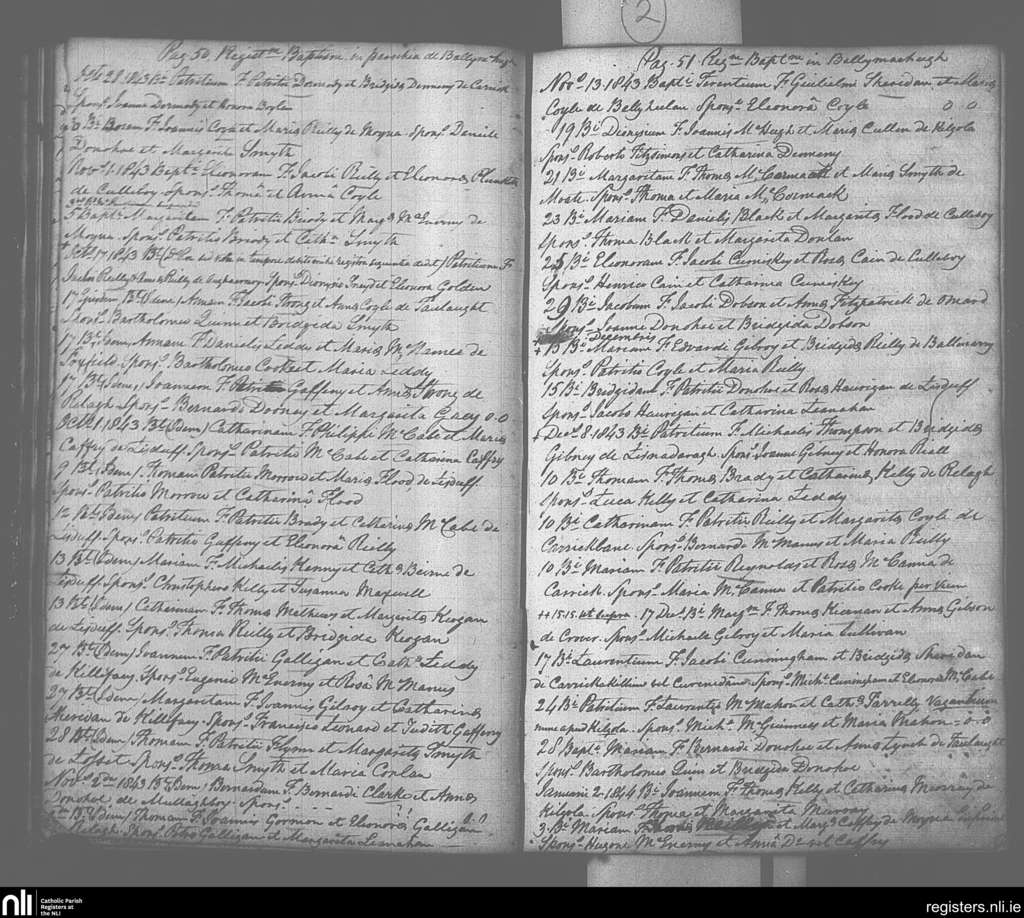 2
Pag. 50 Registm Baptism in parochia de
Octb 28. 1843 Patritium F. Patritii Dermody et Bridgidæ Dennany de Carrick
Sponss Joanne Dermody et Honora Boylan
30 Bt Rosam F. Joannis et Maria Reilly de Moyna Sponss Daniele
Donohoe et Margarit Smyth
Novr 1. 1843 Bapti Eleonoram F. Jacobi Reilly et Eleonoræ Plunkett
de Culleboy Sponss Thoma et Anna Coyle
5 Bapti Margaritam F. Patritii Brady et Marg McEnerny de
Moyna Sponss Patritio Brady et Cath. Smyth
Octb 17 1843 Bt Patritium F
Reilly et Reilly de Sponss Dionysio et Elenora Golden
17 Bt (Idem) Annam F. Jacobi Strong et Anna Coyle de Taulaught
Sponss Bartholomeo Quinn et Bridgida Smyth
17 Bt Idem, Annam F. Danielis Leddy et Maria McNamee de
Foxfield Sponss Bartholomeo Cooke et Maria Leddy
17 Bt (Idem) Joannem F. Gaffeny et Anna Strong de
Relagh Sponss Bernardo Dooney et Margarita Gaey 0.0
Octb 1. 1843 Bt (Idem) Catharinam F. Philippi McCabe et Maria
Caffry de Lisduff. Sponss Patritio McCabe et Catharina Caffry
9 Bt (Idem) Thomam Patritii Morrow et Maria Flood, de Lisduff.
Sponss Patritio Morrow et Catharinâ Flood
12 Bt (Idem) Patritium F. Patritii Brady et Catharina McCabe de
Lisduff Sponss Patritio Gaffeny et Eleonorâ Reilly
13 Bt (Idem) Mariam F. Michaelis Kenny et Cath Beirne de
Lisduff. Sponss Christophero Kelly et Susanna Maxwell
13 Bt (Idem) Catharinam F. Thoma Mathews et Margarita Keogan
de Lisduff. Sponss Thoma Reilly et Bridgida Keogan
27 Bt (Idem) Joannem F. Patritii Galligan et Cath. Leddy
de Killifany. Sponss Eugenio McEnerny et Rosâ McManus
27 Bt (Idem) Margaritam F. Joannis Gilroy et Catharina
Sheridan de Killifany. Sponss Francisco Leonard et Judith Gaffeny
28 Bt (Idem) Thomam F. Patritii Flynn et Margarita Smyth
de Losset Sponss Thoma Smyth et Maria Conlan
Novr 2do 1843 Bt (Idem) Bernardum F. Bernardi Clark et Anna
Donohoe de Mullaghboy Sponss
5to Bt (Idem) Thomam F. Joannis Gormon et Eleonora Galligan 0.0
Relagh Sponss Petro Galligan et Margarita Lesnahan
Pag. 51 Regm Baptm in Ballymacheugh
Novr 13. 1843 Bapti Terentium F. Gulielmi Sheredan et Maria
Coyle de Ballyhelan Sponss Eleonorâ Coyle 0 0
19 Bt Dionysium F. Joannis McHugh et Maria Cullen de Kilgola
Sponss Roberto Fitzsimons et Catharina Dennany
21 Bt Margaritam F. Thoma McCormack et Maria Smyth de
Moate Sponss Thoma et Maria McCormack
23 Bt Mariam F. Danielis Black et Margarita Flood de Culleboy
Sponss Thoma Black et Margarita Donlan
25 Bt Eleonoram F. Jacobi Cumiskey et Rosa Cain de Culleboy
Sponss Henrico Cain et Catharina Cumiskey
29 Bt Jacobum F. Jacobi Dobson et Anna Fitzpatrick de Omard
Sponss Joanne Donohoe et Bridgida Dobson
Decembris
++ 13 Bt Mariam F. Edvardi Gilroy et Bridgida Reilly de Ballinarry
Sponss Patritio Coyle et Maria Reilly
15 Bt Bridgidam F. Patritii Donohoe et Rosa Haurigan de Lisduff
Sponss Jacobo Haurigan et Catharina Lesnahan
+ Decr 8. 1843 Bt Patritium F. Michaelis Thompson et Bridgida
Gibney de Lisnadaragh. Sponss Joanne Gibney et Honora Reall
10 Bt Thomam F. Thoma Brady et Catharina Kelly de Relagh
Sponss Luca Kelly et Catharina Leddy
10 Bt Catharinam F. Patritii Reilly et Margarita Coyle de
Carrickbane Sponss Bernardo McManus et Maria Reilly
10 Bt Mariam F. Patritii Reynolds et Rosa McCanna de
Carrick Sponss Maria McCanna et Patritio Cooke
++ 15.15. ut supra. 17 Decr Bt Margm F. Thoma Keenan et Anna Gibson
de Crover Sponss Michaele Gilroy et Maria Sullivan
17 Bt Laurentium F. Jacobi Cunningham et Bridgida Sheridan
de Carrickakillin vel Sponss Mich Cunningham et Elenora McCabe
24 Bt Patritium F. Laurentii McMahon et Cath Farrelly Vagantium
nunc apud Kilgola. Sponss Mich. McGuinness et Maria Mahon = 0.0
28 Bapti Mariam F. Bernardi Donohoe et Anna Lynch de Taulaught
Sponss Bartholomeo Quinn et Bridgida Donohoe
Januarii 2. 1844 Bt Joannem F. Thoma Kelly et Catharina Murray de
Kilgola. Sponss Thoma et Margarita Murray
3 Bt Mariam F. et Marg Caffry de Moyna
Sponss Hugone McEnerny et Annâ vel Caffry
nli
Catholic Parish
Registers at
the NLI
registers.nli.ie